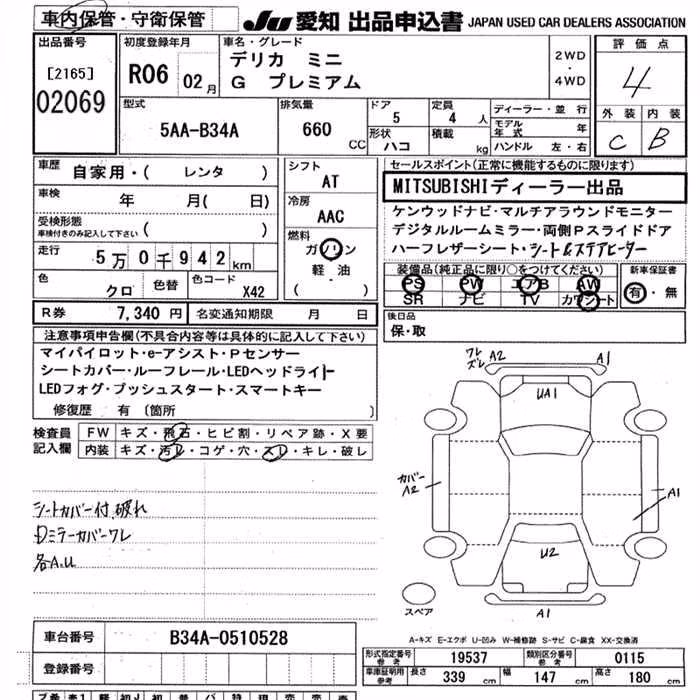 車内保管・守衛保管
JU 愛知 出品申込書 JAPAN USED CAR DEALERS ASSOCIATION
出品番号
[2165]
02069
初度登録年月
R06 02月
車名・グレード
デリカ ミニ
G プレミアム
2WD
・
4WD
評価点
4
外装 内装
C B
型式
5AA-B34A
排気量
660
CC
ドア
5
形状
ハコ
定員
4 人
積載
kg
ディーラー・並行
モデル年式 年
ハンドル 左・右
車歴
自家用・( レンタ )
車検
年 月( 日)
受検形態
(車検付きのみ記入して下さい) ( )
走行
5万0千942km
色
クロ
色替
色コード
X42
シフト
AT
冷房
AAC
燃料
ガソリン
軽・油
( )
R券 7,340 円
名変通知期限 月 日
セールスポイント(正常に機能するものに限ります)
MITSUBISHIディーラー出品
ケンウッドナビ・マルチアラウンドモニター
デジタルルームミラー・両側Pスライドドア
ハーフレザーシート・シート&ステアヒーター
装備品(純正品に限り○をつけてください)
PS PW エアB AW
SR ナビ TV カワシート
新車保証書
有・無
後日品
保・取
注意事項申告欄(不具合内容等は具体的に記入して下さい)
マイパイロット・e-アシスト・Pセンサー
シートカバー・ルーフレール・LEDヘッドライト
LEDフォグ・プッシュスタート・スマートキー
修復歴 有 〔箇所 〕
検査員記入欄
FW キズ・飛石・ヒビ割・リペア跡・X要
内装 キズ・汚レ・コゲ・穴・スレ・キレ・破レ
シートカバー付、破れ
Dミラーカバーワレ
各A.U
ワレ
ズレ A2
A1
UA1
カバー
A2
A1
U2
A1
スペア
A-キズ E-エクボ U-凹み W-補修跡 S-サビ C-腐食 XX-交換済
車台番号 B34A-0510528
登録番号
形式指定番号 参考 19537
類別区分番号 参考 0115
車庫証明用 参考 長さ 339 cm 幅 147 cm 高さ 180 cm